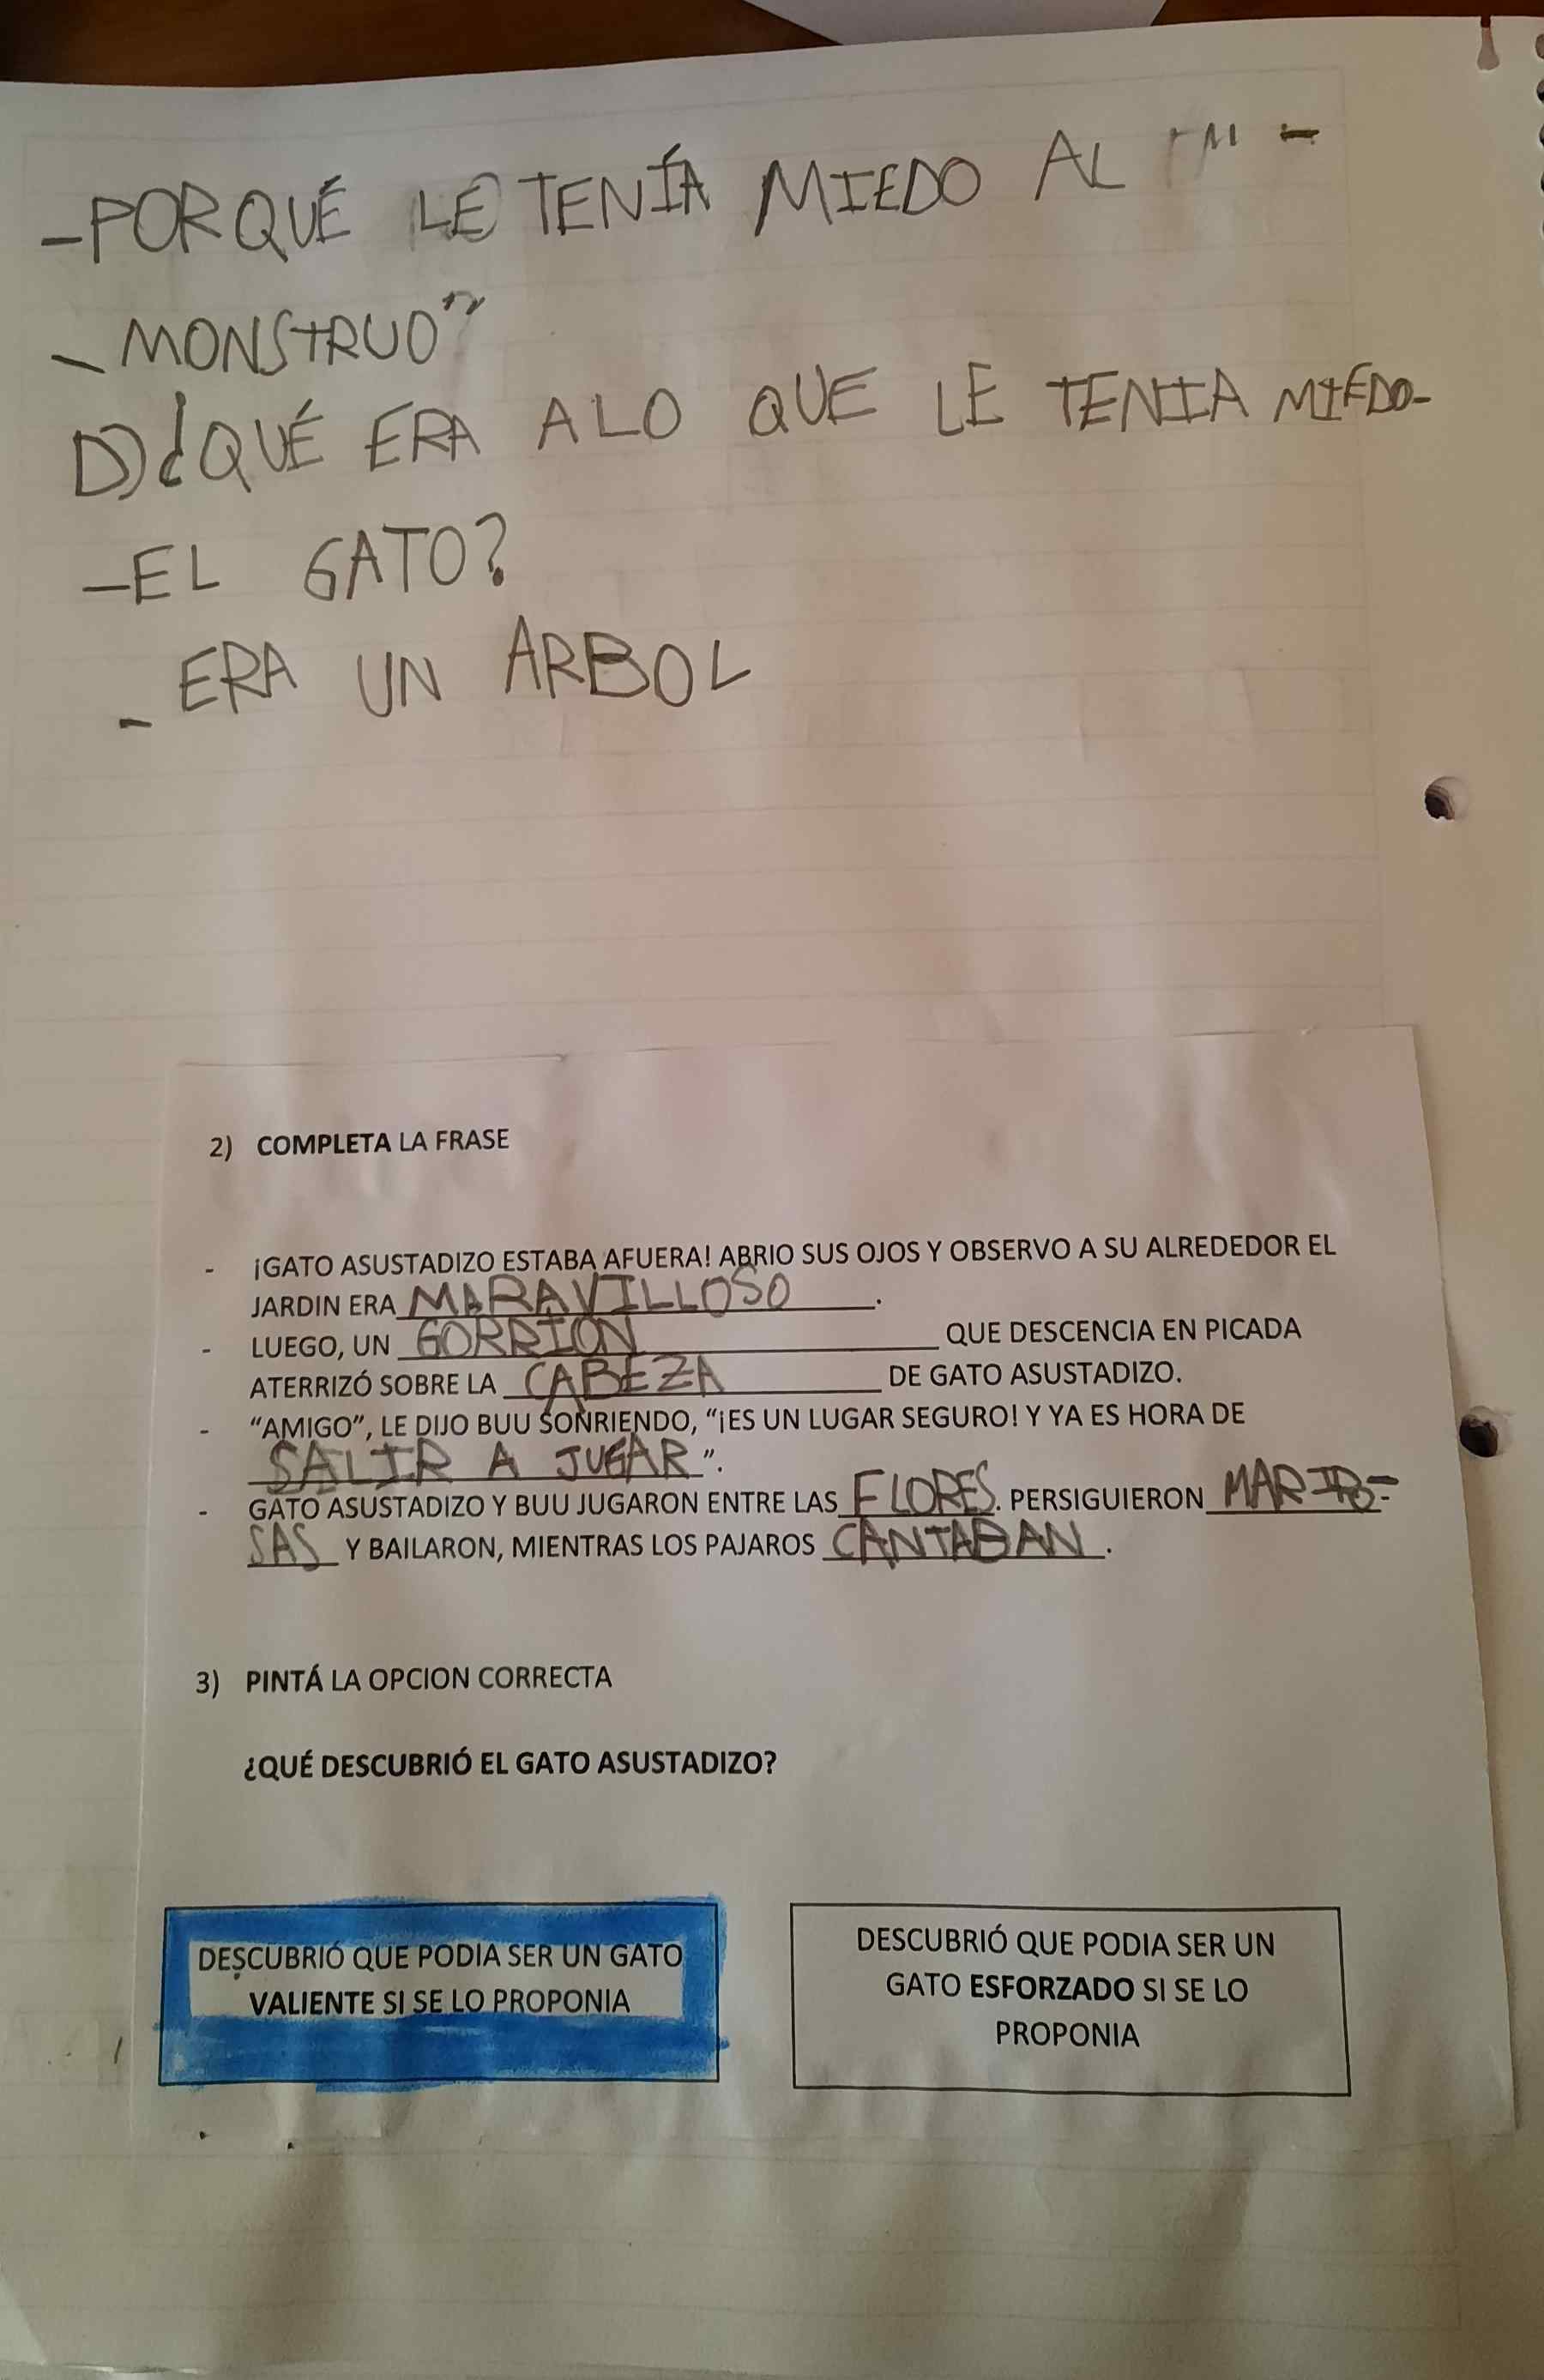 -PORQUÉ LE TENÍA MIEDO AL " -
- MONSTRUO"
D) ¿QUÉ ERA A LO QUE LE TENIA MIEDO-
-EL GATO?
- ERA UN ARBOL
2) COMPLETA LA FRASE
- ¡GATO ASUSTADIZO ESTABA AFUERA! ABRIO SUS OJOS Y OBSERVO A SU ALREDEDOR EL
JARDIN ERA MARAVILLOSO.
- LUEGO, UN GORRIÓN QUE DESCENCIA EN PICADA
ATERRIZÓ SOBRE LA CABEZA DE GATO ASUSTADIZO.
- “AMIGO”, LE DIJO BUU SONRIENDO, “¡ES UN LUGAR SEGURO! Y YA ES HORA DE
SALIR A JUGAR”.
- GATO ASUSTADIZO Y BUU JUGARON ENTRE LAS FLORES. PERSIGUIERON MARIPO-
SAS Y BAILARON, MIENTRAS LOS PAJAROS CANTABAN.
3) PINTÁ LA OPCION CORRECTA
¿QUÉ DESCUBRIÓ EL GATO ASUSTADIZO?
DESCUBRIÓ QUE PODIA SER UN GATO
VALIENTE SI SE LO PROPONIA
DESCUBRIÓ QUE PODIA SER UN
GATO ESFORZADO SI SE LO
PROPONIA